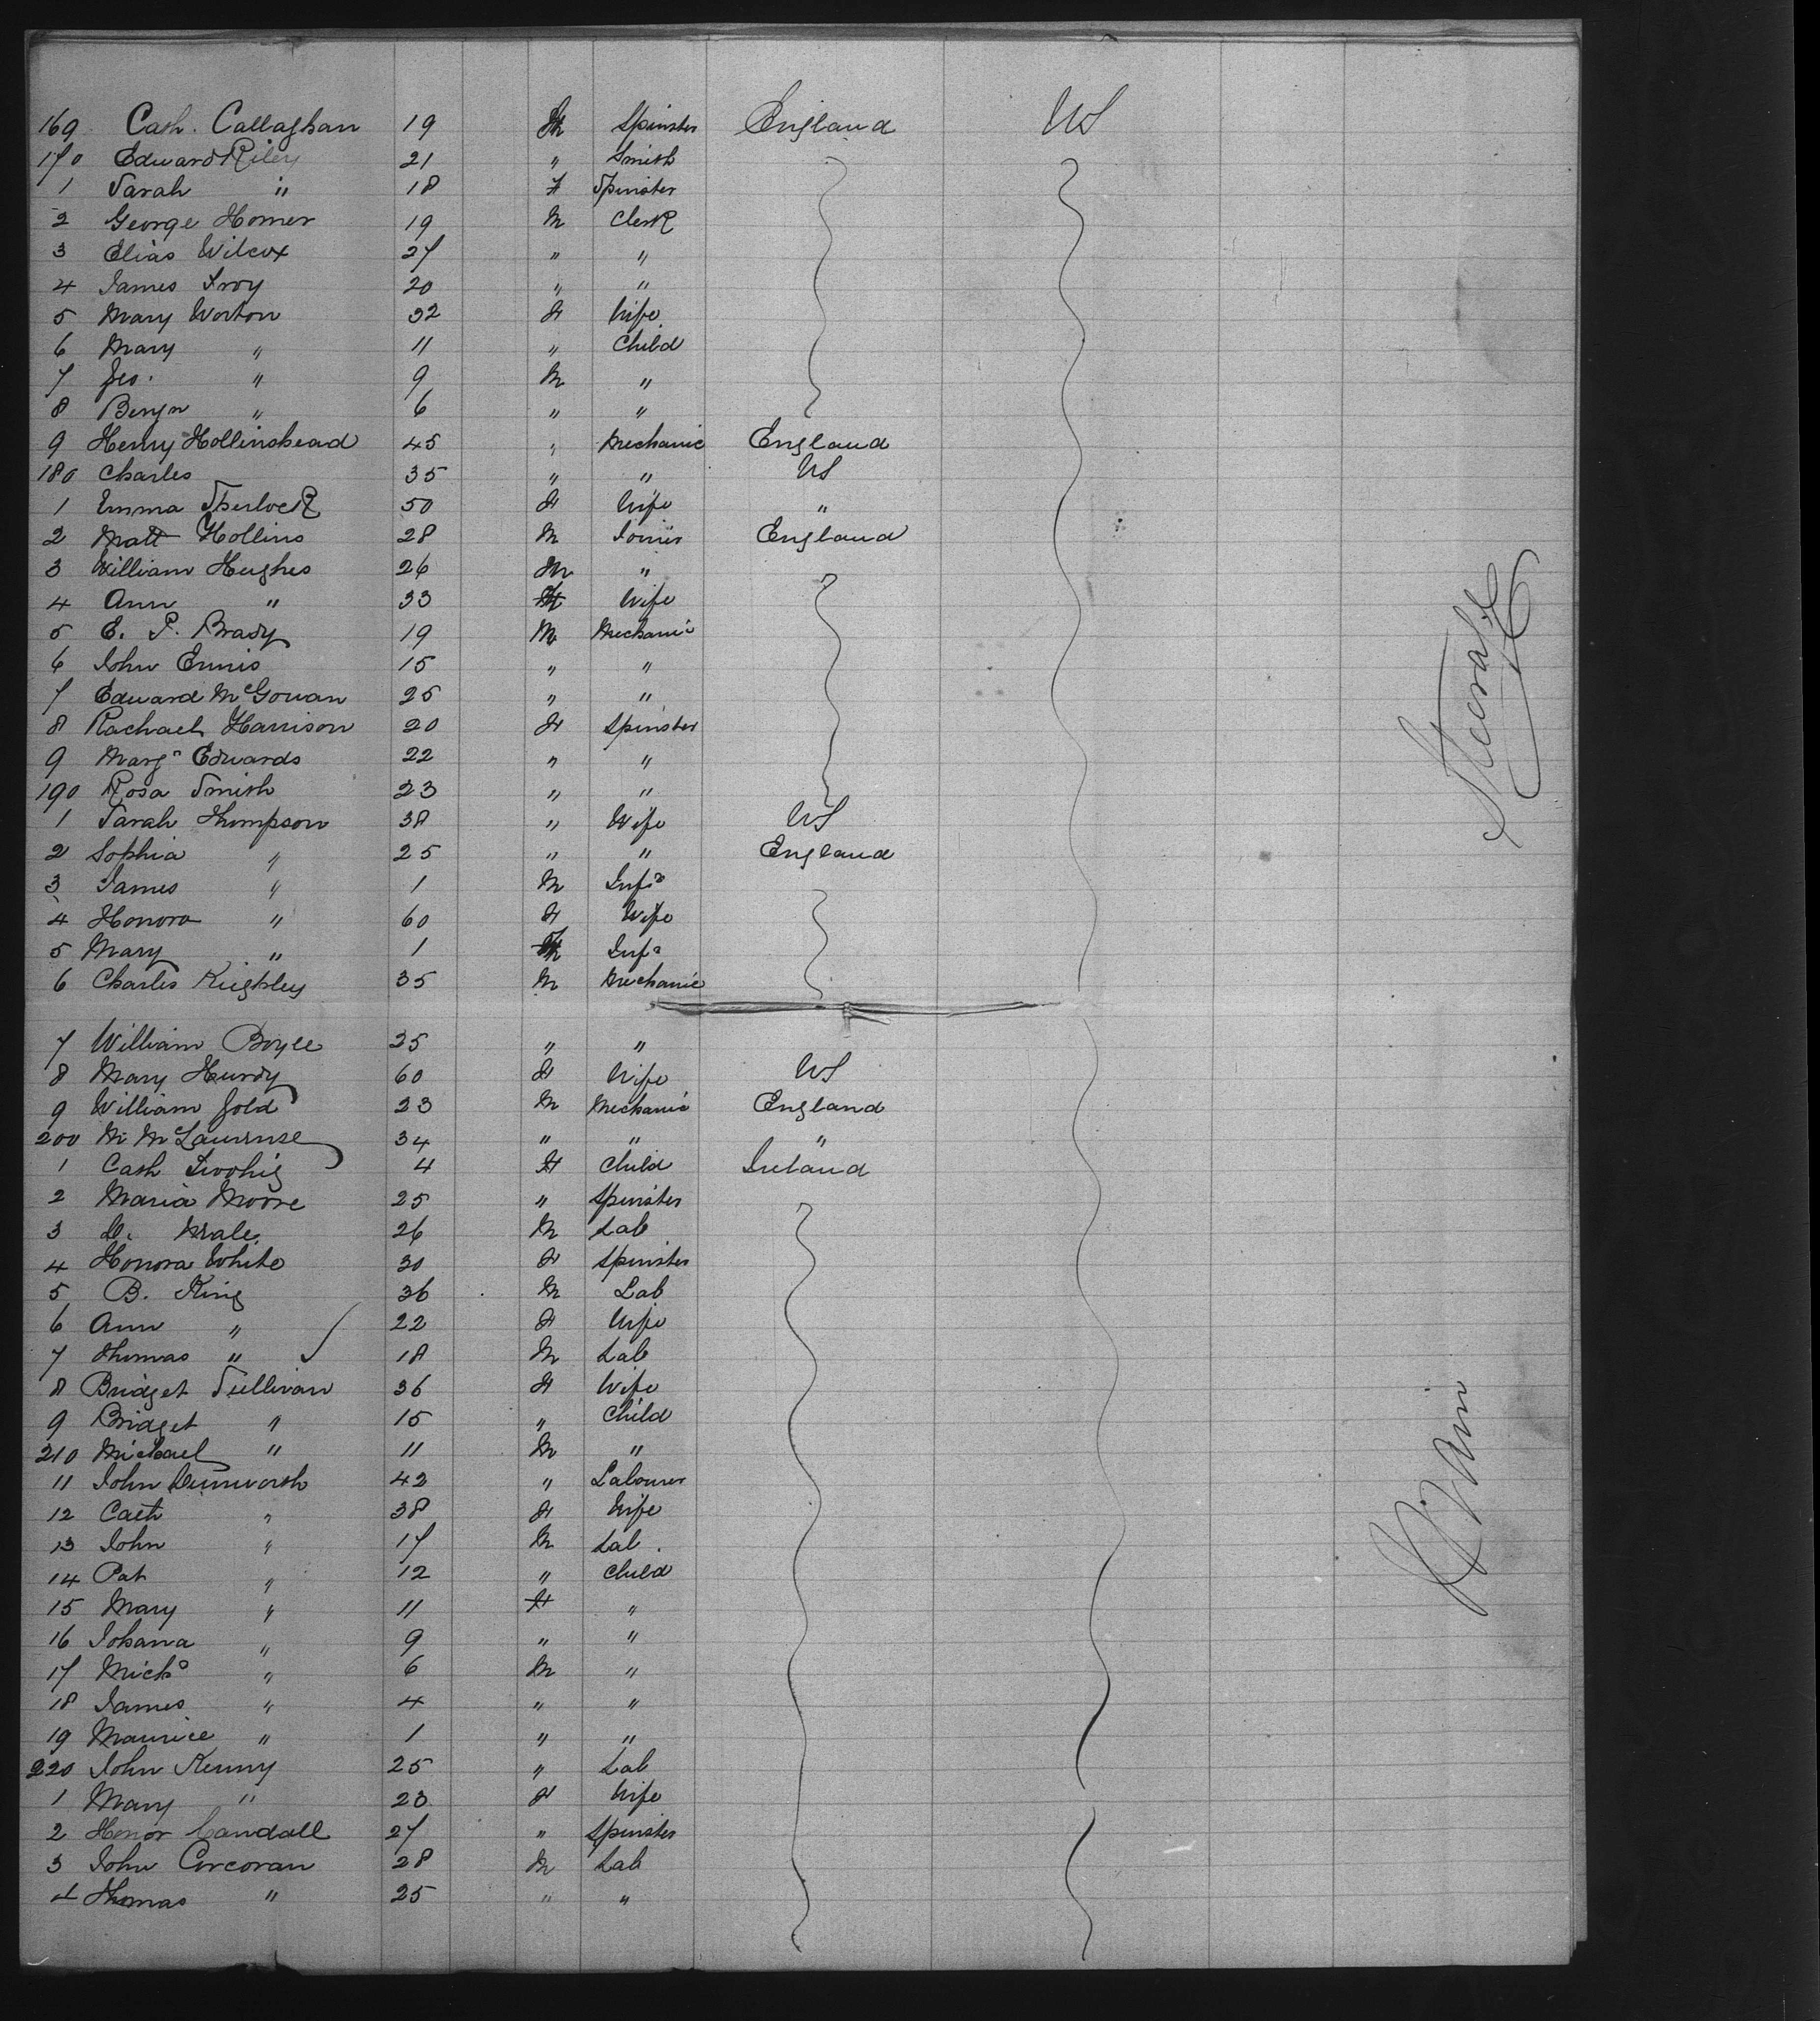 169 Cath. Callaghan 19 Spinster England US
170 Edward Riley 21 " Smith
1 Sarah " 18 F Spinster
2 George Homer 19 M Clerk
3 Elias Wilcox 27 " "
4 James Troy 20 " "
5 Mary Worton 32 F Wife
6 Mary " 11 " Child
7 Geo. " 9 M "
8 Benjn " 6 " "
9 Henry Hollinshead 45 " Mechanic England
180 Charles 35 " " US
1 Emma 50 F Wife "
2 Matt Hollins 28 M Joiner England
3 William Hughes 26 M "
4 Ann " 33 F Wife
5 E. P. Brady 19 M Mechanic
6 John Ennis 15 " "
7 Edward McGowan 25 " "
8 Rachael Harrison 20 F Spinster
9 Margt Edwards 22 " "
190 Rosa Smith 23 " "
1 Sarah Thompson 38 " Wife US
2 Sophia " 25 " " England
3 James " 1 M Inft
4 Honora " 60 F Wife
5 Mary " 1 F Inft
6 Charles Kighley 35 M Mechanic
7 William Boyce 25 " "
8 Mary Hurdy 60 F Wife US
9 William Gold 23 M Mechanic England
200 M. 34 " " "
1 Cath Twohig 4 F Child Ireland
2 Maria Moore 25 " Spinster
3 26 M Lab
4 Honora White 30 F Spinster
5 B. King 36 M Lab
6 Ann " 22 F Wife
7 Thomas " 18 M Lab
8 Bridget Sullivan 36 F Wife
9 Bridget " 15 " Child
210 Michael " 11 M "
11 John Dunworth 42 " Labourer
12 Cath " 38 F Wife
13 John " 17 M Lab.
14 Pat " 12 " Child
15 Mary " 11 F "
16 Johana " 9 " "
17 Michl " 6 M "
18 James " 4 " "
19 Maurice " 1 " "
220 John Kenny 25 " Lab
1 Mary " 23 F Wife
2 Honor 27 " Spinster
3 John Corcoran 28 M Lab
4 Thomas " 25 " "
Steerage